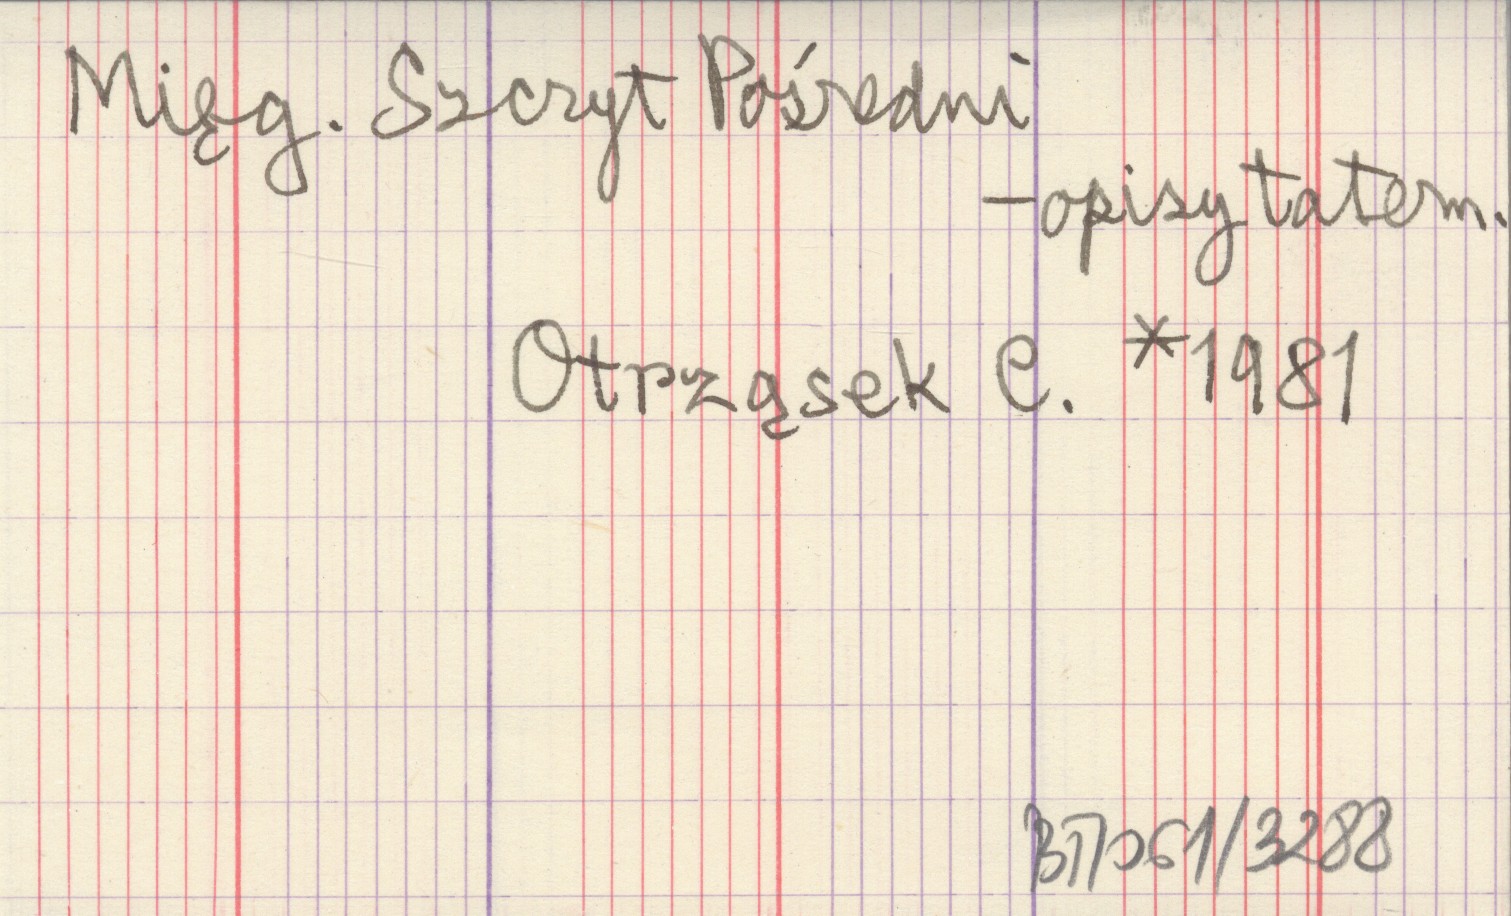 Mięg. Szczyt Pośredni
-opisy tatern.
Otrząsek C. *1981